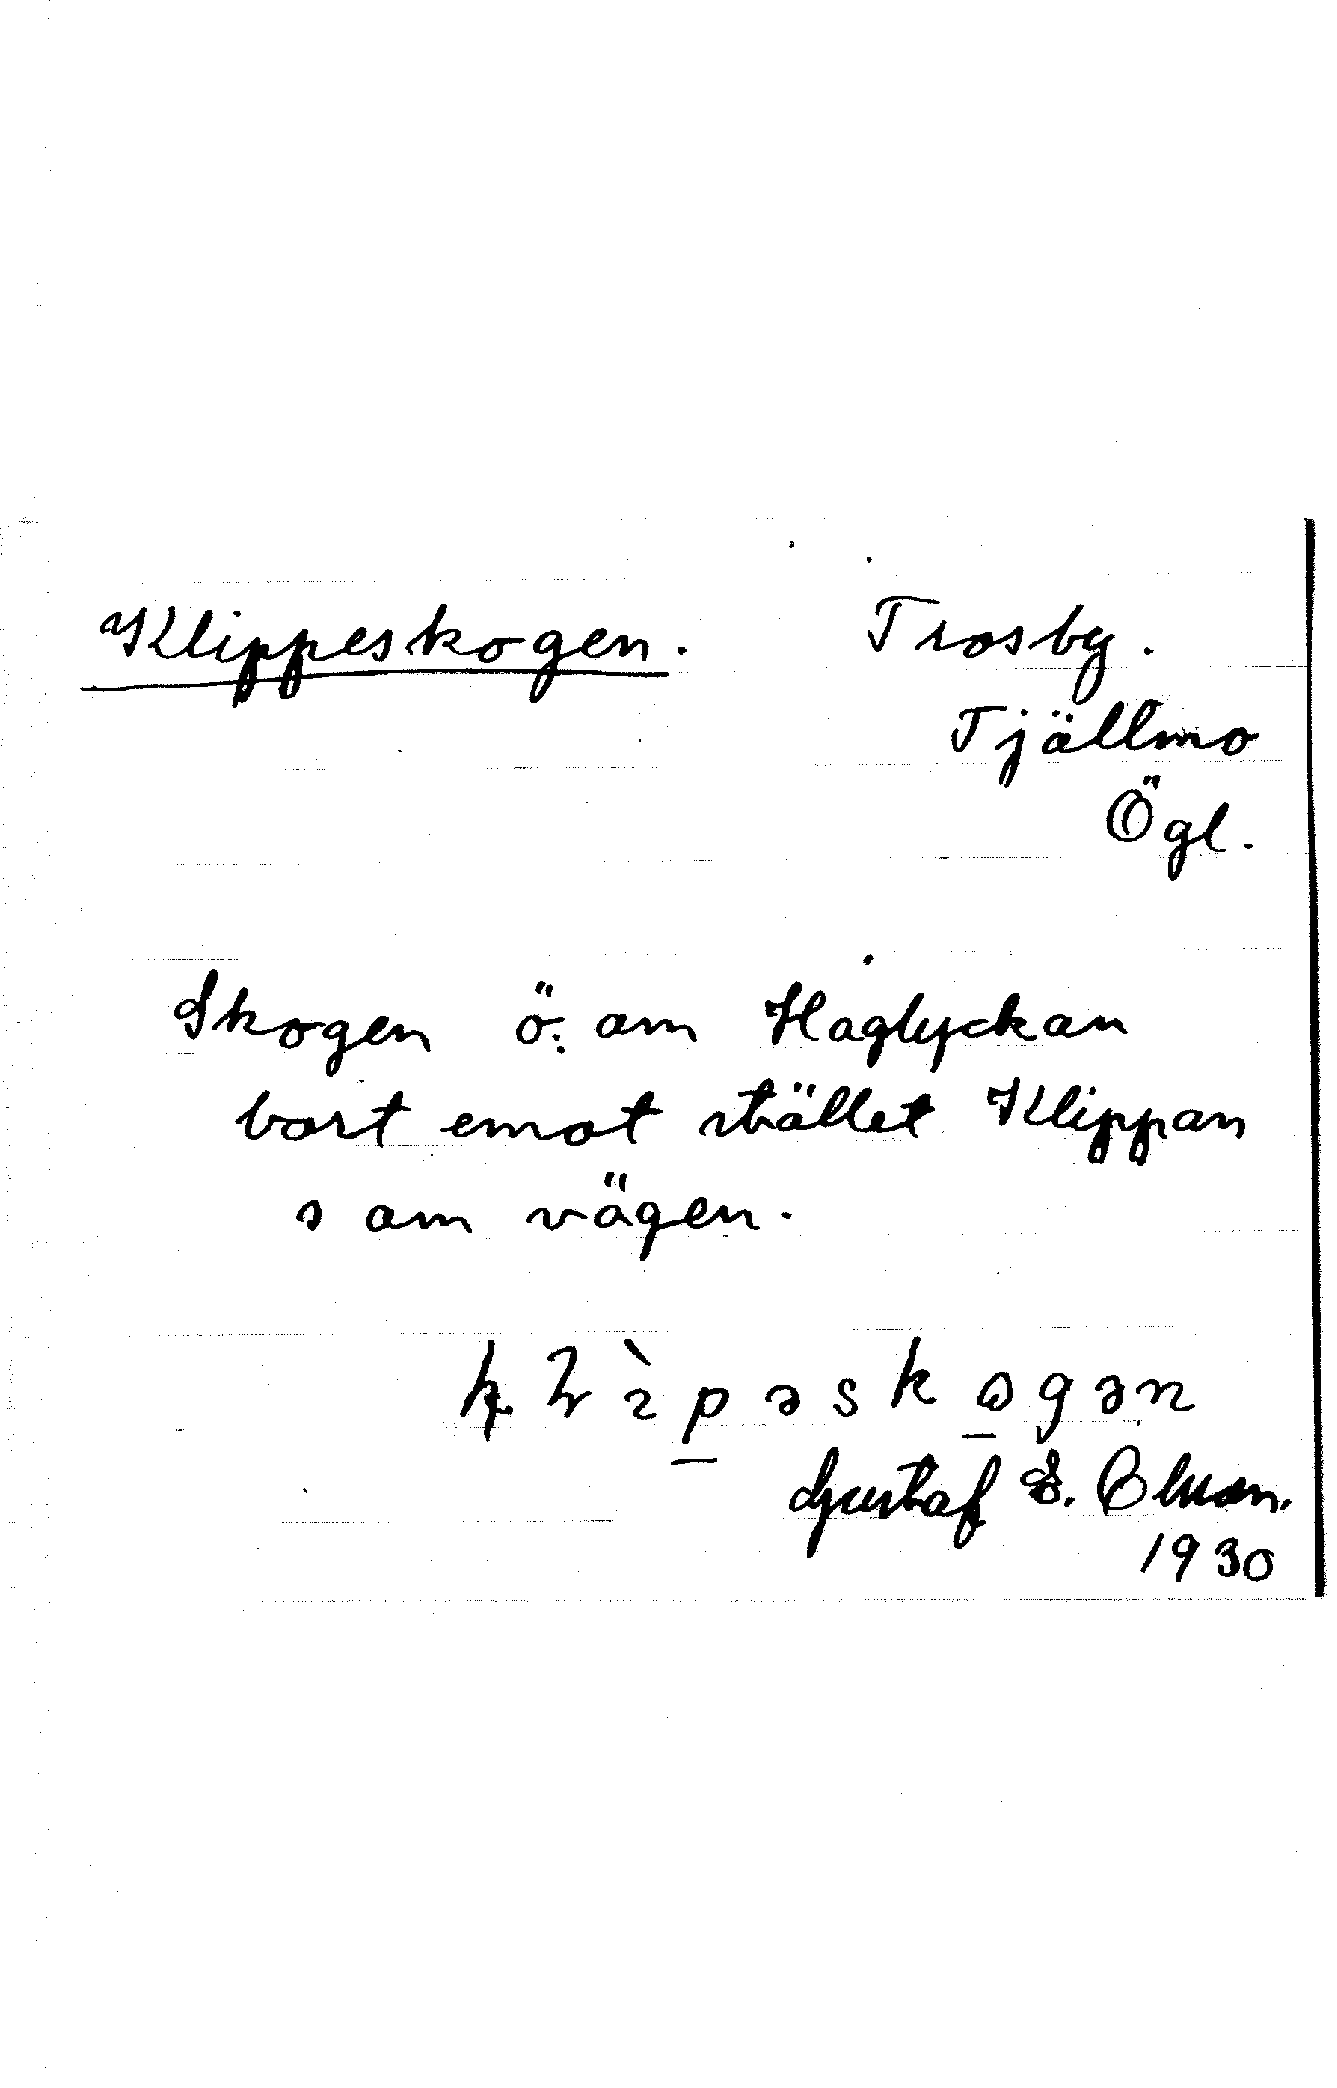 Klippeskogen. Trosby.
Tjällmo
Ögl.
Skogen ö. om Haglyckan
bort emot stället Klippan
s om vägen.
Gustaf E.
1930